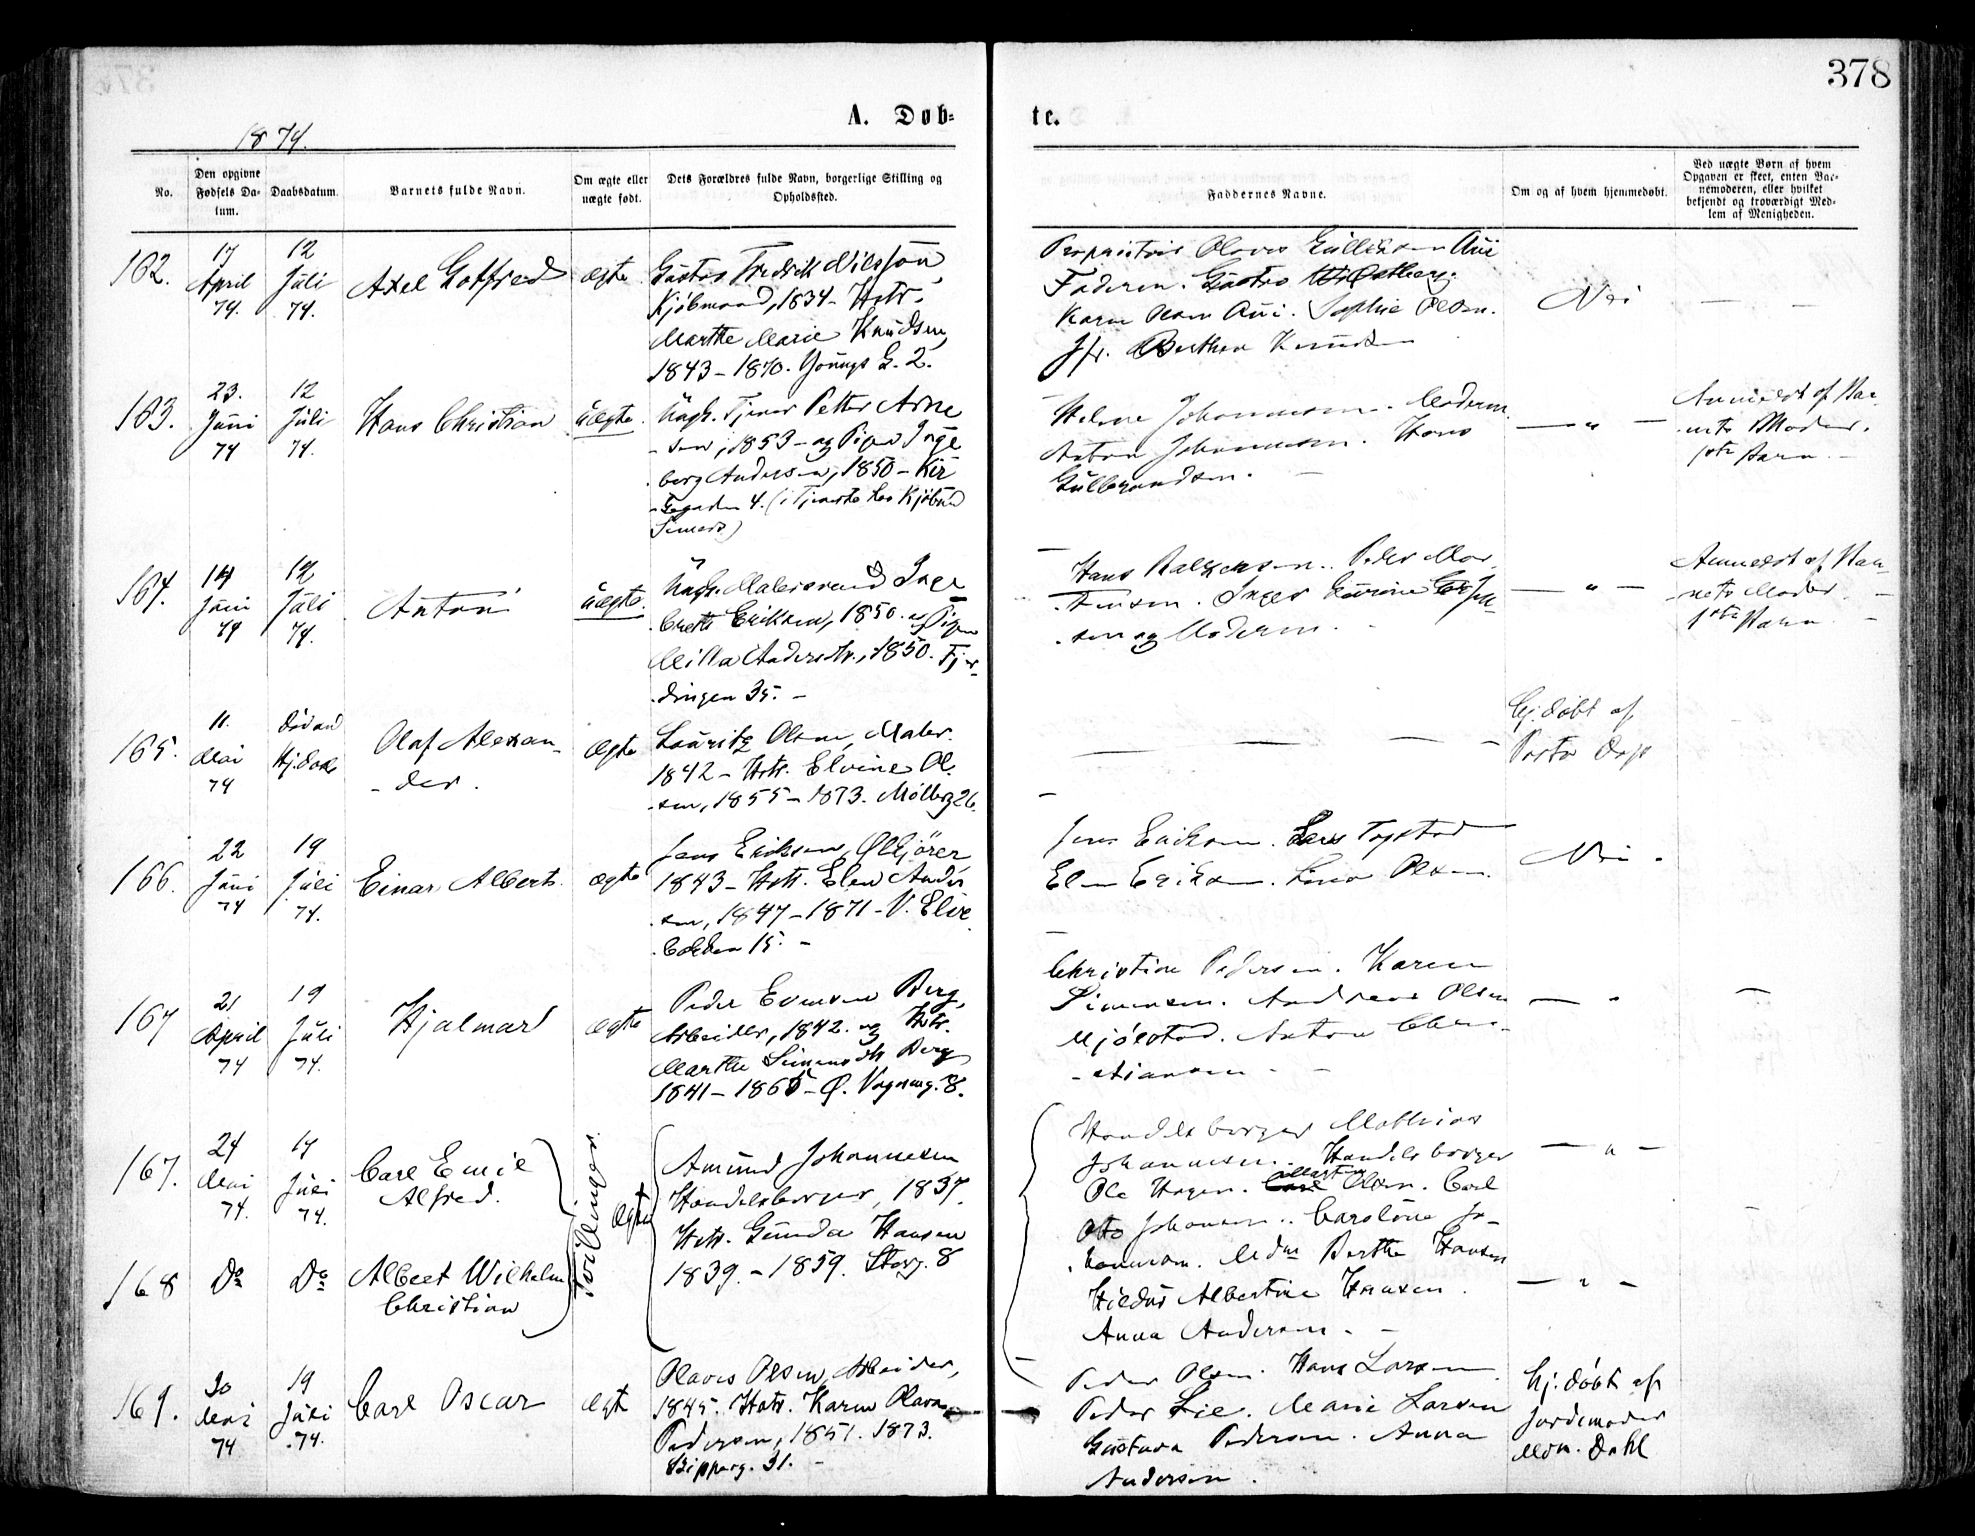 378
A. Døb-
te.
1874.
No.
Den opgivne
Fødsels Da-
tum.
Daabsdatum.
Barnets fulde Navn.
Om ægte eller
uægte født.
Dets Forældres fulde Navn, borgerlige Stilling og
Opholdssted.
Faddernes Navne.
Om og af hvem hjemmedøbt.
Ved uægte Børn af hvem
Opgaven er skeet, enten Bar-
nemoderen, eller hvilket
bekjendt og troværdigt Med-
lem af Menigheden.
162.
17
April
74.
12
Juli
74.
Axel Gotfred
ægte
Gustav Fredrik Nilsson,
Kjøbmand, 1834 - Hstr.
Marthe Marie Knudsen,
1843 - 1870. Youngs G. 2.
Faderen. Gustav Østberg.
Karen Olsen. Sophie Olsen.
Jfr. Berthea Knudsen
Nei
163.
23.
Juni
74
12
Juli
74.
Hans Christian
uægte.
Ungk. Tjener Petter Arne
- sen, 1853 - og Pigen Inge
- borg Andersen, 1850 - Kir
- kegaden 4. (i Tjeneste hos Kjøbmd
Helene Johannesen. Moderen.
Anton Johannesen. Hans
Gulbrandsen.
— " —
Anmeldt af Bar-
nets Moder.
1ste Barn.
164.
14
Juni
74
12
Juli
74.
Anton
uægte.
Ungk. Malersvend Inge
- breth Eriksen, 1850. og Pigen
Milla Andersdtr., 1850. Fjer-
dingen 35. -
Hans
sen og Moderen.
— " —
Anmeldt af Bar-
nets Moder.
1ste Barn.
165.
11.
Mai
74
Død
Hj.døbt
Olaf Alexan-
- der.
Ægte
Lauritz Olsen, Maler.
1842 - Hstr. Elvine Ol
- sen, 1855 - 1873. Møllerg 26.
Hj. døbt af
166.
22
Juni
74
19
Juli
74.
Einar Albert.
ægte
Jens Eriksen, Ølkjører
1843 - Hstr. Elen Ander
- sen, 1847 - 1871 - V. Elve
bakken 15. -
Jens Eriksen. Lars
Elen Eriksen. Olsen.
Nei.
167
21
April
74
19
Juli
74.
Hjalmar
Ægte
Peder Evensen Berg,
Arbeider, 1842. og Hstr.
Marthe Simensdtr Berg
1841 - 1865 - Ø. Vognmg. 8.
Christine Pedersen. Karen
Simensen. Andreas Olsen
Mjølstad. Anton Chri-
- stiansen.
— " —
167.
24
Mai
74.
17
Juli
74.
Carl Emil
Alfred.
Tvillinger
Ægte
Amund Johannesen
Handelsborger, 1837.
Hstr. Gunda Hansen
1839. - 1859. Storg. 8
Handelsborger Mathias
Johannesen. Handelsborger
Ole Hagen. Martin Olsen. Carl
Otto Johansen. Caroline Jo-
hannesen. Mdm Berthe Hansen
Hilda Albertine Hansen.
Anna Andersen.
— " —
168
Do
Do
Albert Wilhelm
Christian
— " —
169.
30
Mai
74
19
Juli
.74.
Carl Oscar
Ægte
Olaves Olsen, Arbeider,
1845. Hstr. Karen Olava
Pedersen, 1851. 1873.
Skipperg. 31.
Peder Olsen. Hans Larsen
Peder Lie. Marie Larsen
Gustava Pedersen. Anna
Andersen.
Hj. døbt af
Jordemoder
Mdm. Dahl